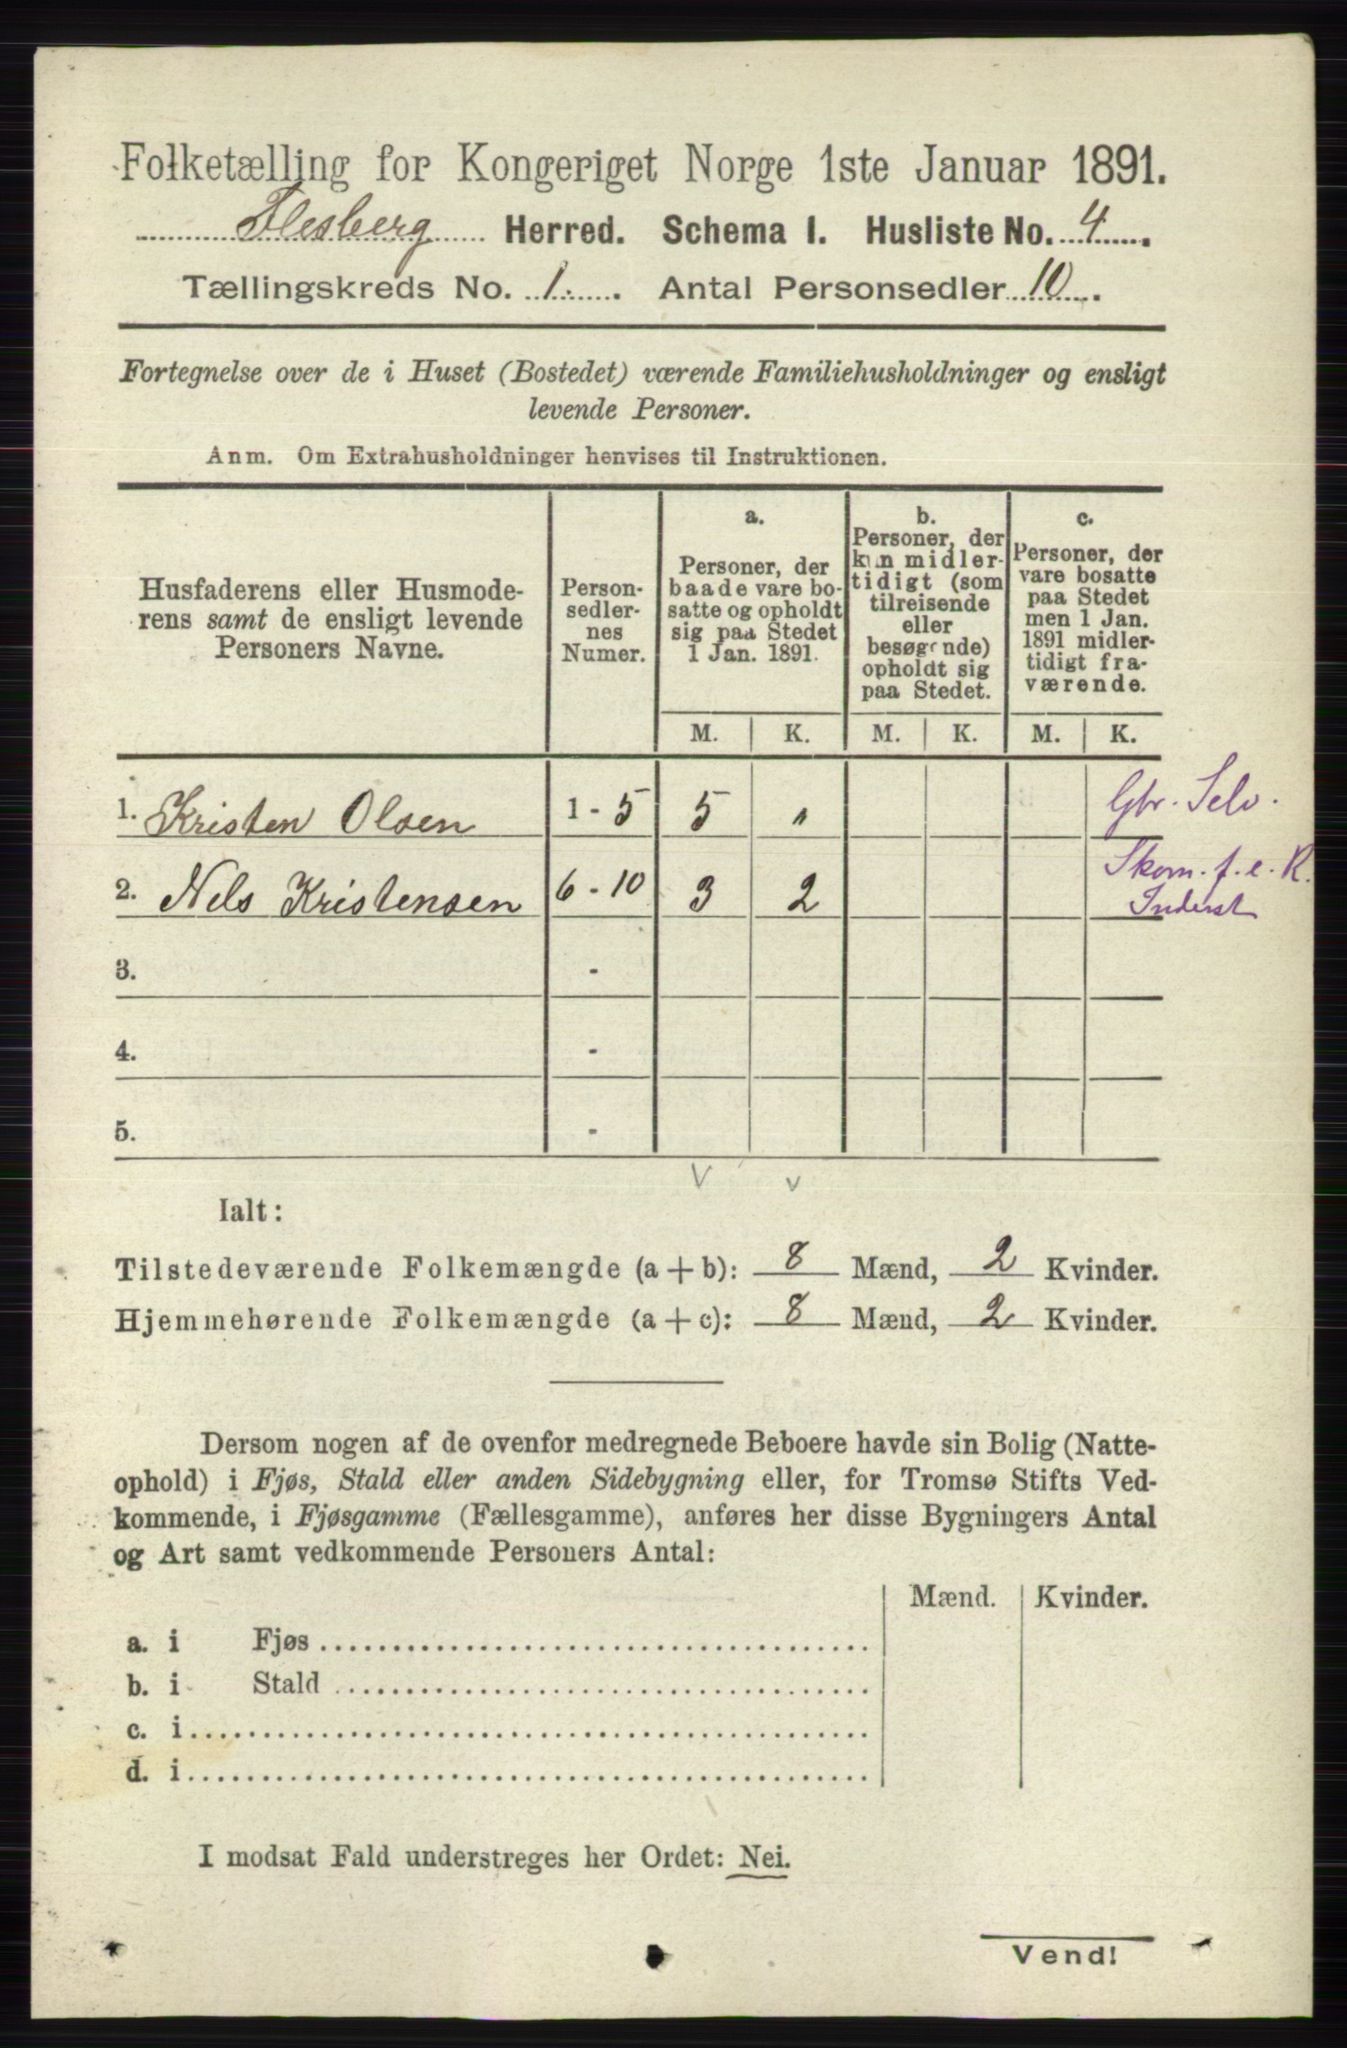 Folketælling for Kongeriget Norge 1ste Januar 1891.
Flesberg Herred. Schema I. Husliste No. 4.
Tællingskreds No. 1. Antal Personsedler 10.
Fortegnelse over de i Huset (Bostedet) værende Familiehusholdninger og ensligt
levende Personer.
Anm. Om Extrahusholdninger henvises til Instruktionen.
Husfaderens eller Husmode-
rens samt de ensligt levende
Personers Navne.
Person-
sedler-
nes
Numer.
a.
Personer, der
baade vare bo-
satte og opholdt
sig paa Stedet
1 Jan. 1891.
b.
Personer, der
kun midler-
tidigt (som
tilreisende
eller
besøgende)
opholdt sig
paa Stedet.
c.
Personer, der
vare bosatte
paa Stedet
men 1 Jan.
1891 midler-
tidigt fra-
værende.
M. K. M. K. M. K.
1. Kristen Olsen 1 - 5 5 " Gbr. Selv.
2. Nels Kristensen 6 - 10 3 2 Skom. f. e. R.
Inderst
3. -
4. -
5. -
v v
Ialt:
Tilstedeværende Folkemængde (a + b): 8 Mænd, 2 Kvinder.
Hjemmehørende Folkemængde (a + c): 8 Mænd, 2 Kvinder.
Dersom nogen af de ovenfor medregnede Beboere havde sin Bolig (Natte-
ophold) i Fjøs, Stald eller anden Sidebygning eller, for Tromsø Stifts Ved-
kommende, i Fjøsgamme (Fællesgamme), anføres her disse Bygningers Antal
og Art samt vedkommende Personers Antal:
Mænd. Kvinder.
a. i Fjøs
b. i Stald
c. i
d. i
I modsat Fald understreges her Ordet: Nei.
Vend!